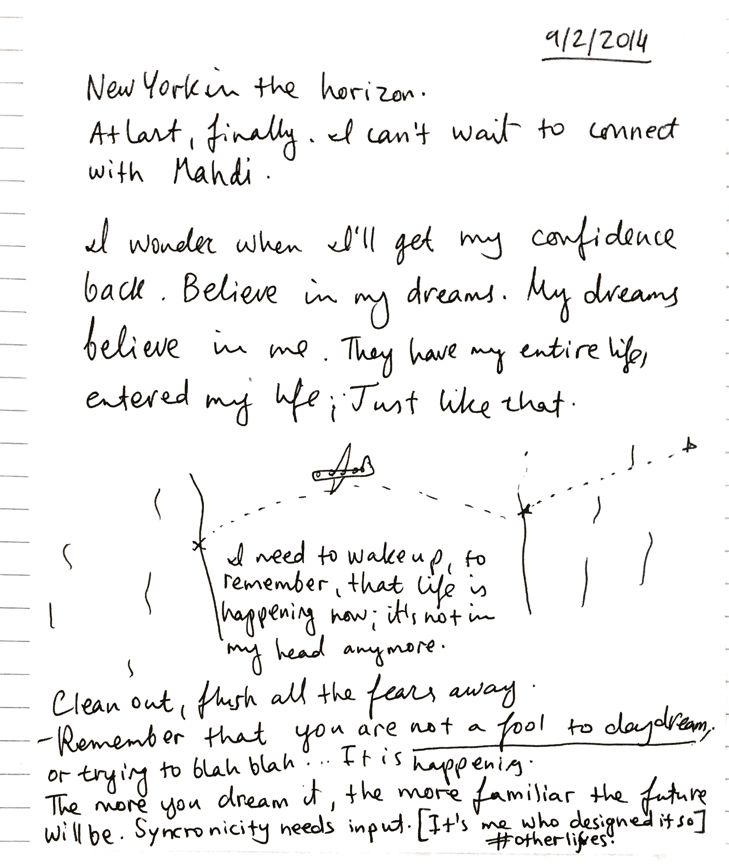 9/2/2014
New York in the horizon.
At last, finally. I can't wait to connect
with Mahdi.
I wonder when I'll get my confidence
back. Believe in my dreams. My dreams
believe in me. They have my entire life,
entered my life; Just like that.
I need to wake up, to
remember, that life is
happening now; it's not in
my head anymore.
Clean out, flush all the fears away.
- Remember that you are not a fool to daydream,
or trying to blah blah... It is happening.
The more you dream it, the more familiar the future
will be. Syncronicity needs input. [It's me who designed it so]
#otherlifes.